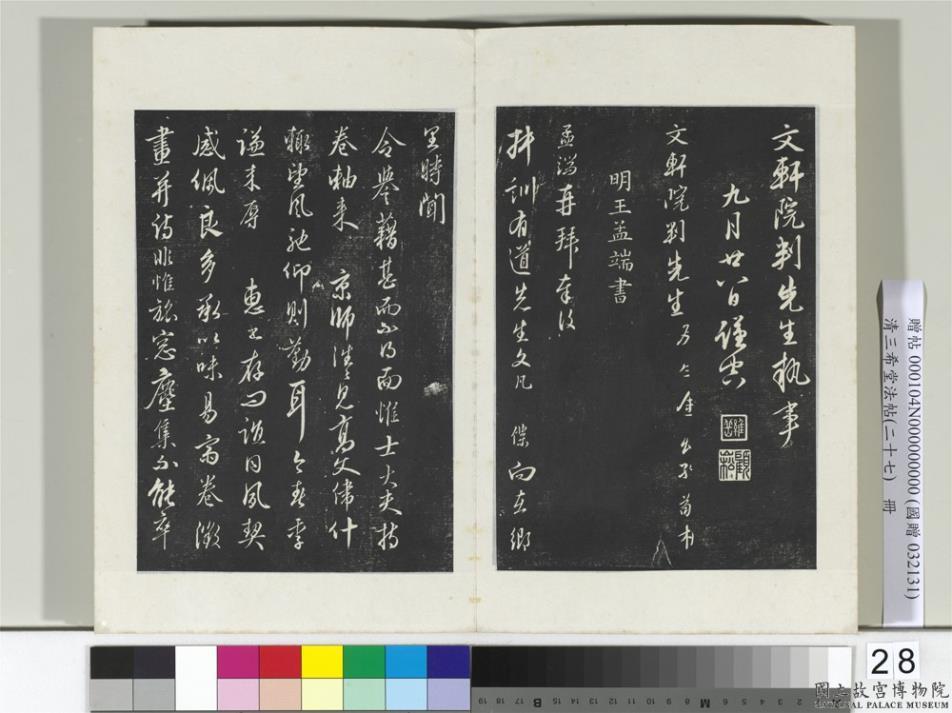 文軒院判先生執事
九月廿八日謹空
文軒院判先生
明王孟端書
孟端再拜奉復
訓有道先生文几 向在鄉
里時聞
令譽藉甚而不得面惟士大夫持
卷軸來 京師往往見高文偉什
輒望風馳仰則勤耳今春季
謙來辱 惠書存問誼同夙契
感佩良多承以味易齋卷徵
畫并詩非惟旅窓塵集不能卒
贈帖 000104N000000000 (國贈 032131)
清三希堂法帖(二十七) 冊
28
國立故宮博物院
NATIONAL PALACE MUSEUM